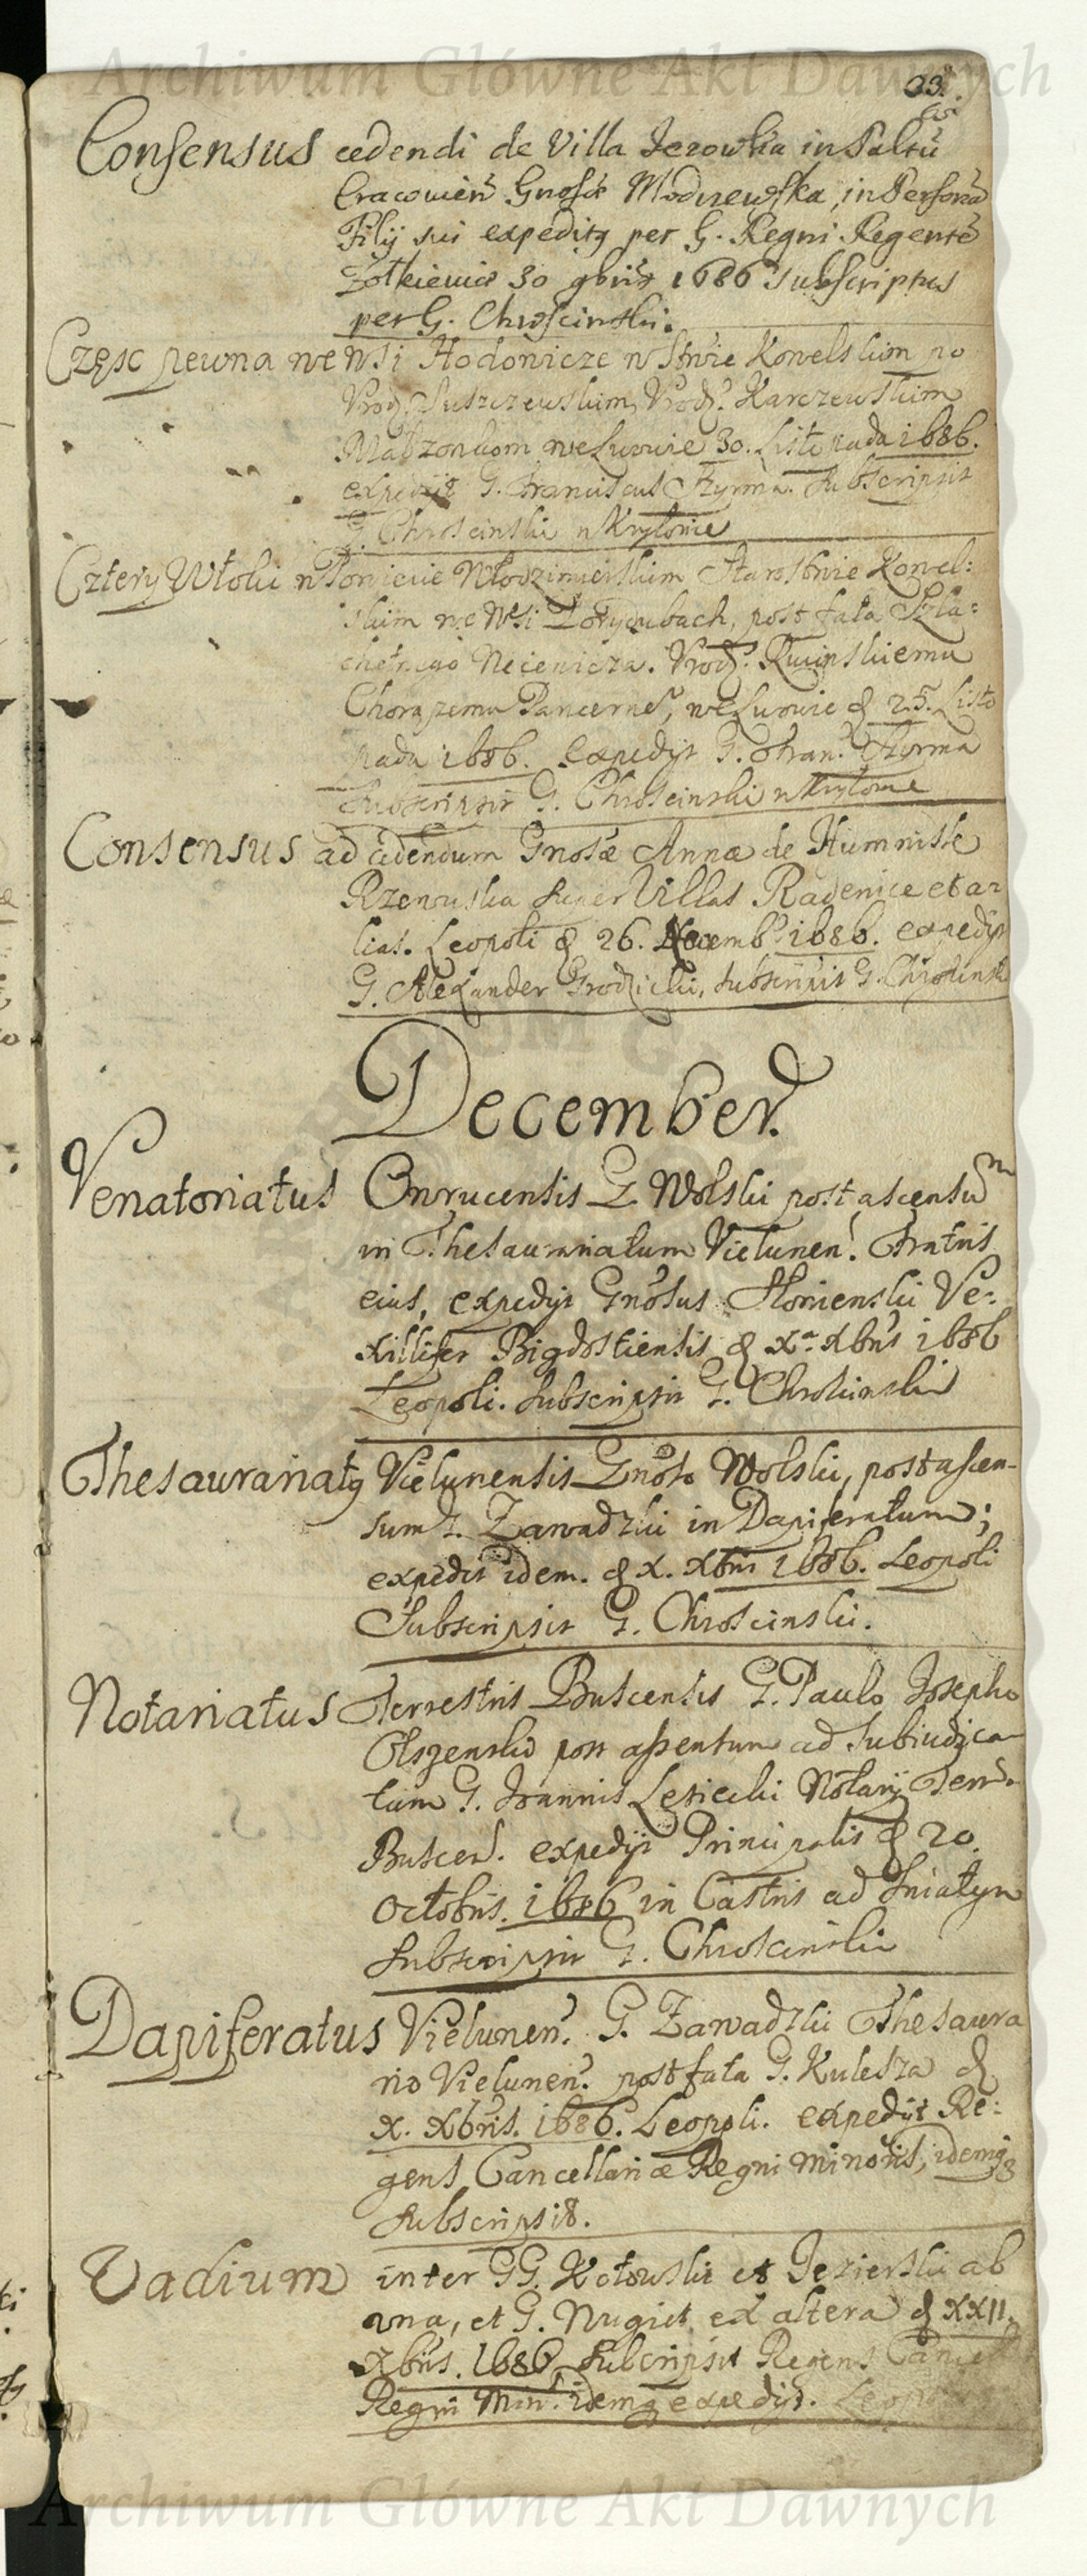 Archiwum Główne Akt Dawnych
93.
Consensus cedendi de Villa Jerowka in Paltu
Cracovien Gnosae Modrzewska, in Persona
Filij sui expeditq per G. Regni Regente
Zolkieviae 30 9bris 1686 subscriptus
per G. Chrościnski.
Częsc pewna we wsi Hodowicze w Stwie Kowelskim po
Vrodz. Suszczewskim, Vrodz. Karczewskim
Małzonkom we Lwowie 30. Listopada 1686.
expedijt G. Franciscus Styrma. Subscripsit
G. Chroscinski w Krylowie
Cztery Włoki w Powiecie Włodzimierskim Starostwie Kowel:
skim we Wsi, post fata Szla:
chetnego Neceniecza. Vrodz. Kucinskiemu
Chorązemu Pancerne, we Lwowie d 25. Listo
pada 1686. Expedijt G. Fran. Styrma
Subscripsit G. Chroscinski w Krylowie
Consensus ad cedendum Gnosae Annae de Humniska
Rzewuska super Villas Radenice et a:
lias. Leopoli d 26. Novemb. 1686. expedijt
G. Alexander Grodzicki, subscripsit G. Chroscinsk
December.
Venatoriatus Owrucensis G Wolski post ascensum
in Thesaurariatum Vielunen. Fratris
eius, expedijt Gnosus Slonienski Ve:
xillifer Bigdostiensis d Xa Xbris 1686
Leopoli. Subscripsit G. Chroscinski
Thesaurariatq Vielunensis Gnoso Wolski, post ascen-
sum G. Zawadzki in Dapiferatum;
expedit idem. d X. Xbris 1686. Leopoli
Subscripsit G. Chroscinski.
Notariatus Terrestris Buscensis G. Paulo Josepho
Olszenski post assensum ad Subiudica
tum G. Joannis Lesiecki Notarij Terr.
Buscen. expedijt Principalis d 20.
Octobris. 1686 in Castris ad Sniatyn
Subscripsit G. Chroscinski
Dapiferatus Vielunen. G. Zawadzki Thesaura
rio Vielunen. post fata G. Kulesza d
X. Xbris. 1686. Leopoli. expedijt Re:
gens Cancellariae Regni minoris, idemq
subscripsit.
Vadium inter GG. Kotowski et Jezierski ab
una, et G. Nugiet ex altera d XXII.
Xbris. 1686 Subscripsit Regens Cancell
Regni Min. idemq expedijt. Leopoli
Archiwum Główne Akt Dawnych